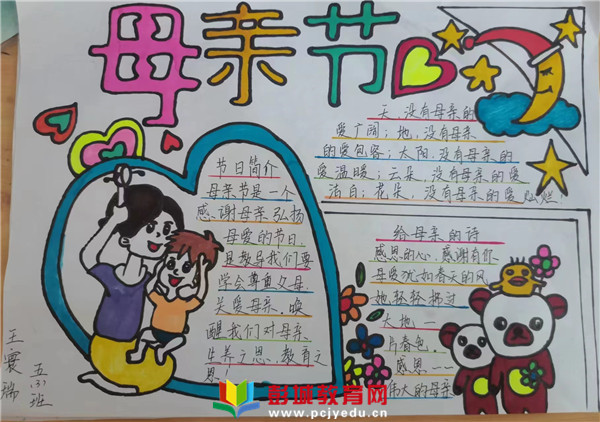 母亲节
天,没有母亲的
爱广阔;地,没有母亲
的爱包容;太阳,没有母亲的
爱温暖;云朵,没有母亲的爱
洁白;花朵,没有母亲的爱灿烂!
节日简介
母亲节是一个
感谢母亲弘扬
母爱的节日
是教导我们要
学会尊重父母
关爱母亲,唤
醒我们对母亲
生养之恩、教育之
恩!
给母亲的诗
感恩的心,感谢有你
母爱犹如春天的风
她轻轻拂过
大地一
片春色,
感恩——
伟大的母亲
王震瑞
五(3)班
彭城教育网
www.pcjyedu.cn